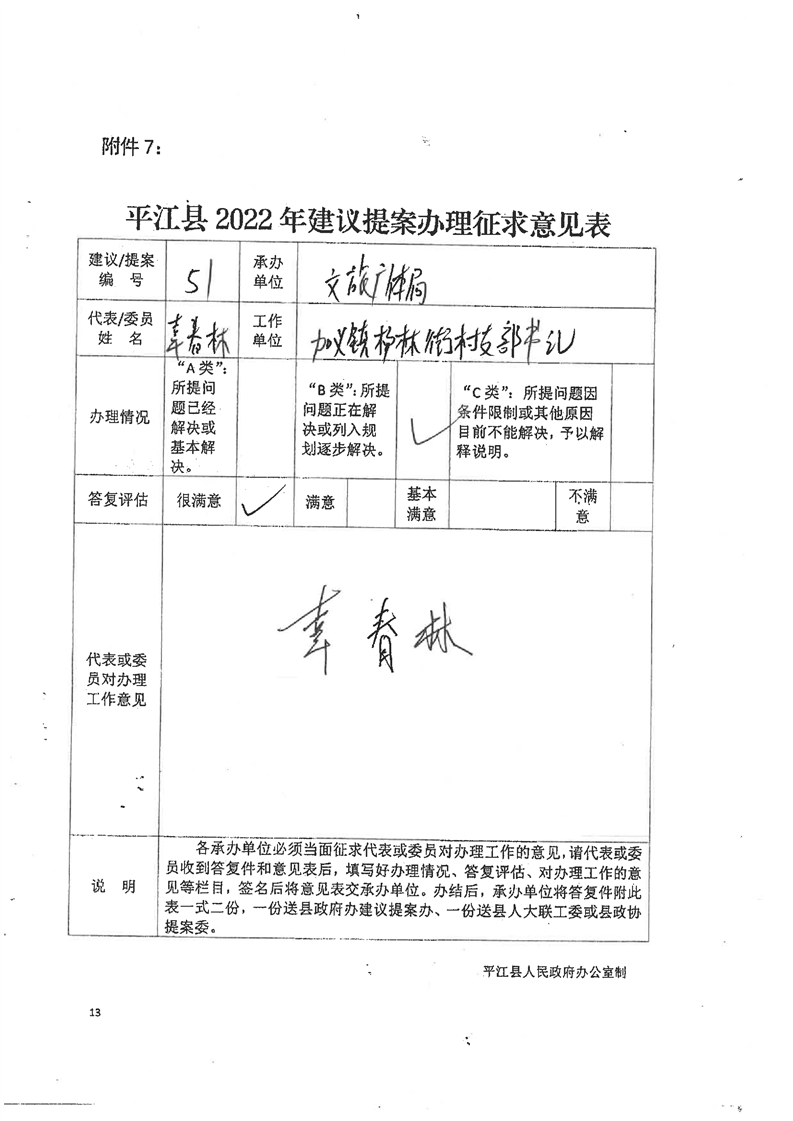 附件7：
平江县2022年建议提案办理征求意见表
建议/提案
编 号
51
承办
单位
文旅广体局
代表/委员
姓 名
辜春林
工作
单位
加义镇杨林街村支部书记
办理情况
“A类”：
所提问
题已经
解决或
基本解
决。
“B类”：所提
问题正在解
决或列入规
划逐步解决。
✓
“C类”：所提问题因
条件限制或其他原因
目前不能解决，予以解
释说明。
答复评估
很满意
✓
满意
基本
满意
不满
意
代表或委
员对办理
工作意见
辜春林
说 明
各承办单位必须当面征求代表或委员对办理工作的意见，请代表或委
员收到答复件和意见表后，填写好办理情况、答复评估、对办理工作的意
见等栏目，签名后将意见表交承办单位。办结后，承办单位将答复件附此
表一式二份，一份送县政府办建议提案办、一份送县人大联工委或县政协
提案委。
平江县人民政府办公室制
13